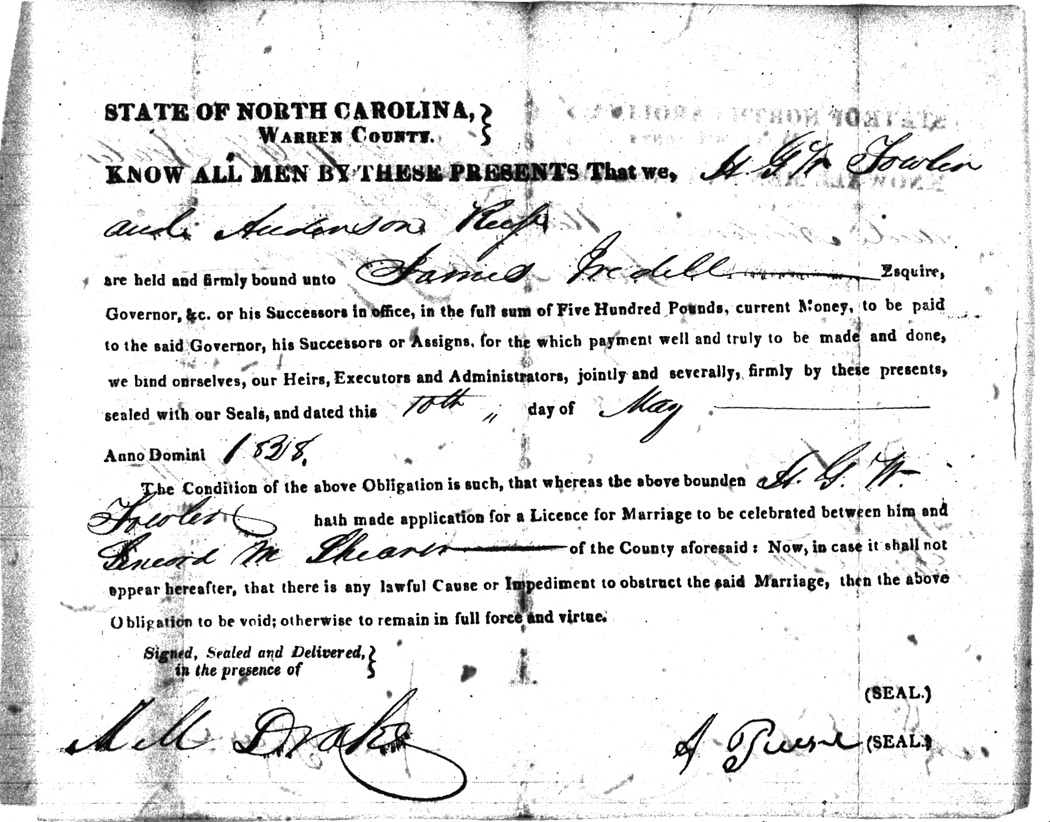 STATE OF NORTH CAROLINA,
WARREN COUNTY.
KNOW ALL MEN BY THESE PRESENTS That we, H. G W Fowler
and Anderson
are held and firmly bound unto James Iredell Esquire,
Governor, &c. or his Successors in office, in the full sum of Five Hundred Pounds, current Money, to be paid
to the said Governor, his Successors or Assigns, for the which payment well and truly to be made and done,
we bind ourselves, our Heirs, Executors and Administrators, jointly and severally, firmly by these presents,
sealed with our Seals, and dated this 10th day of May
Anno Domini 1828.
The Condition of the above Obligation is such, that whereas the above bounden H. G. W.
Fowler hath made application for a Licence for Marriage to be celebrated between him and
M Shearer of the County aforesaid: Now, in case it shall not
appear hereafter, that there is any lawful Cause or Impediment to obstruct the said Marriage, then the above
Obligation to be void; otherwise to remain in full force and virtue.
Signed, Sealed and Delivered,
in the presence of
(SEAL.)
M. M. Drake A (SEAL.)